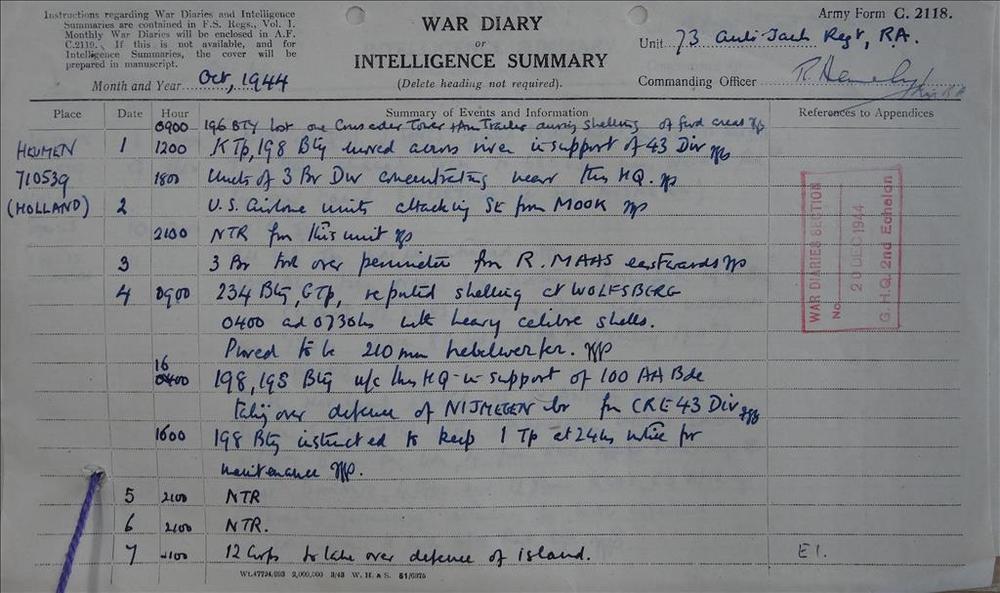 Instructions regarding War Diaries and Intelligence
Summaries are contained in F.S. Regs., Vol. I.
Monthly War Diaries will be enclosed in A.F.
C.2119. If this is not available, and for
Intelligence Summaries, the cover will be
prepared in manuscript.
Month and Year Oct, 1944
WAR DIARY
or
INTELLIGENCE SUMMARY
(Delete heading not required).
Army Form C. 2118.
Unit 73 Anti-Tank Regt, R.A.
Commanding Officer
Place Date Hour Summary of Events and Information References to Appendices
0900 196 BTY lost one Crusader Tower + Trailer during shelling of fwd areas
HEUMEN 1 1200 K Tp, 198 Bty moved across river in support of 43 Div
710539 1800 Units of 3 Br Div concentrating near this HQ.
(HOLLAND) 2 U.S. Airborne units attacking SE from MOOK
2100 NTR from this unit
3 3 Br took over perimeter from R. MAAS eastwards
4 0900 234 Bty, G Tp, reported shelling at WOLFSBERG
0400 and 0730hrs with heavy calibre shells.
Proved to be 210 mm nebelwerfer.
16
0400 198, 195 Bty u/c this HQ in support of 100 AA Bde
taking over defence of NIJMEGEN br from CRE 43 Div
1600 198 Bty instructed to keep 1 Tp at 24 hrs notice for
maintenance
5 2100 NTR
6 2100 NTR.
7 2100 12 Corps to take over defence of island. E1.
WAR DIARIES SECTION
No.
20 DEC 1944
G.H.Q. 2nd Echelon
Wt.47724/993 2,000,000 3/43 W. H. & S. 51/6375